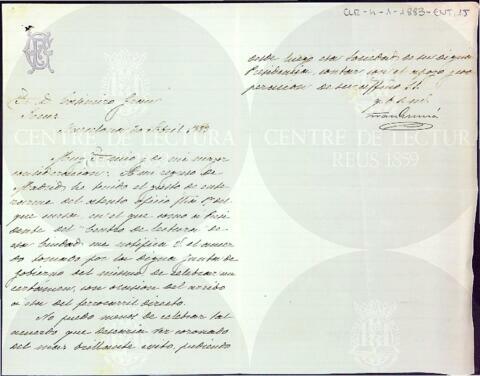 CLR-4-1-1883-ENT, 15
Reus
Barcelona 20 Abril 1883
Muy Sr. mio y de mi mayor
consideracion: A mi regreso de
Madrid he tenido el gusto de ente
rarme del atento oficio
que cursa en el que como a Presi
dente del Centro de lectura de
esa Ciudad me notifica V. el acuer
do tomado por la digna junta de
gobierno del mismo de celebrar un
certamen, con ocasion del arribo
a esa del ferrocarril directo.
No puedo menos de celebrar tal
acuerdo que desearia ver coronado
del mas brillante exito, pudiendo
desde luego esa Sociedad de su digna
Presidencia, contar con el apoyo y coo
peracion de su affmo S.S.
q b s m
CENTRE DE LECTURA
REUS 1859
CENTRE DE LECTURA
REUS 1859